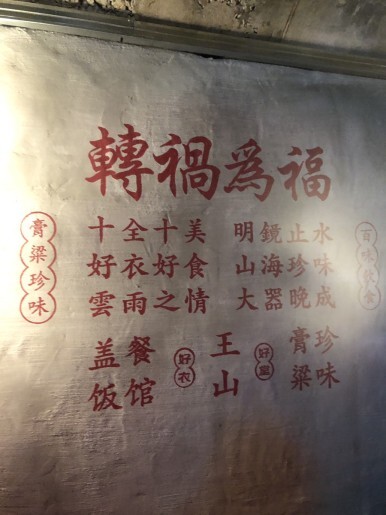 轉禍爲福
膏粱珍味
十全十美
好衣好食
雲雨之情
明鏡止水
山海珍味
大器晚成
百味飲食
盖饭
餐馆
好衣
王山
膏粱
珍味